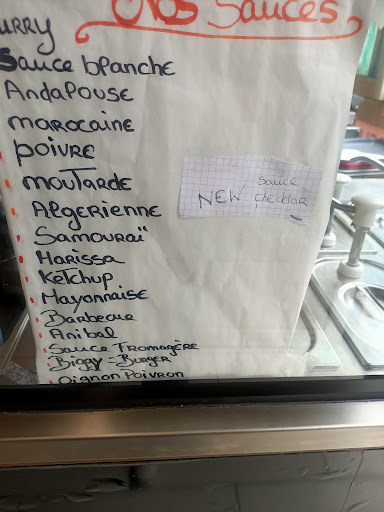 Nos Sauces
URRY
Sauce blanche
Andalouse
marocaine
poivre
moutarde
Algerienne
Samouraï
Harissa
Ketchup
Mayonnaise
Barbecue
Anibal
Sauce Fromagère
Biggy-Burger
Oignon Poivron
sauce
NEW cheddar